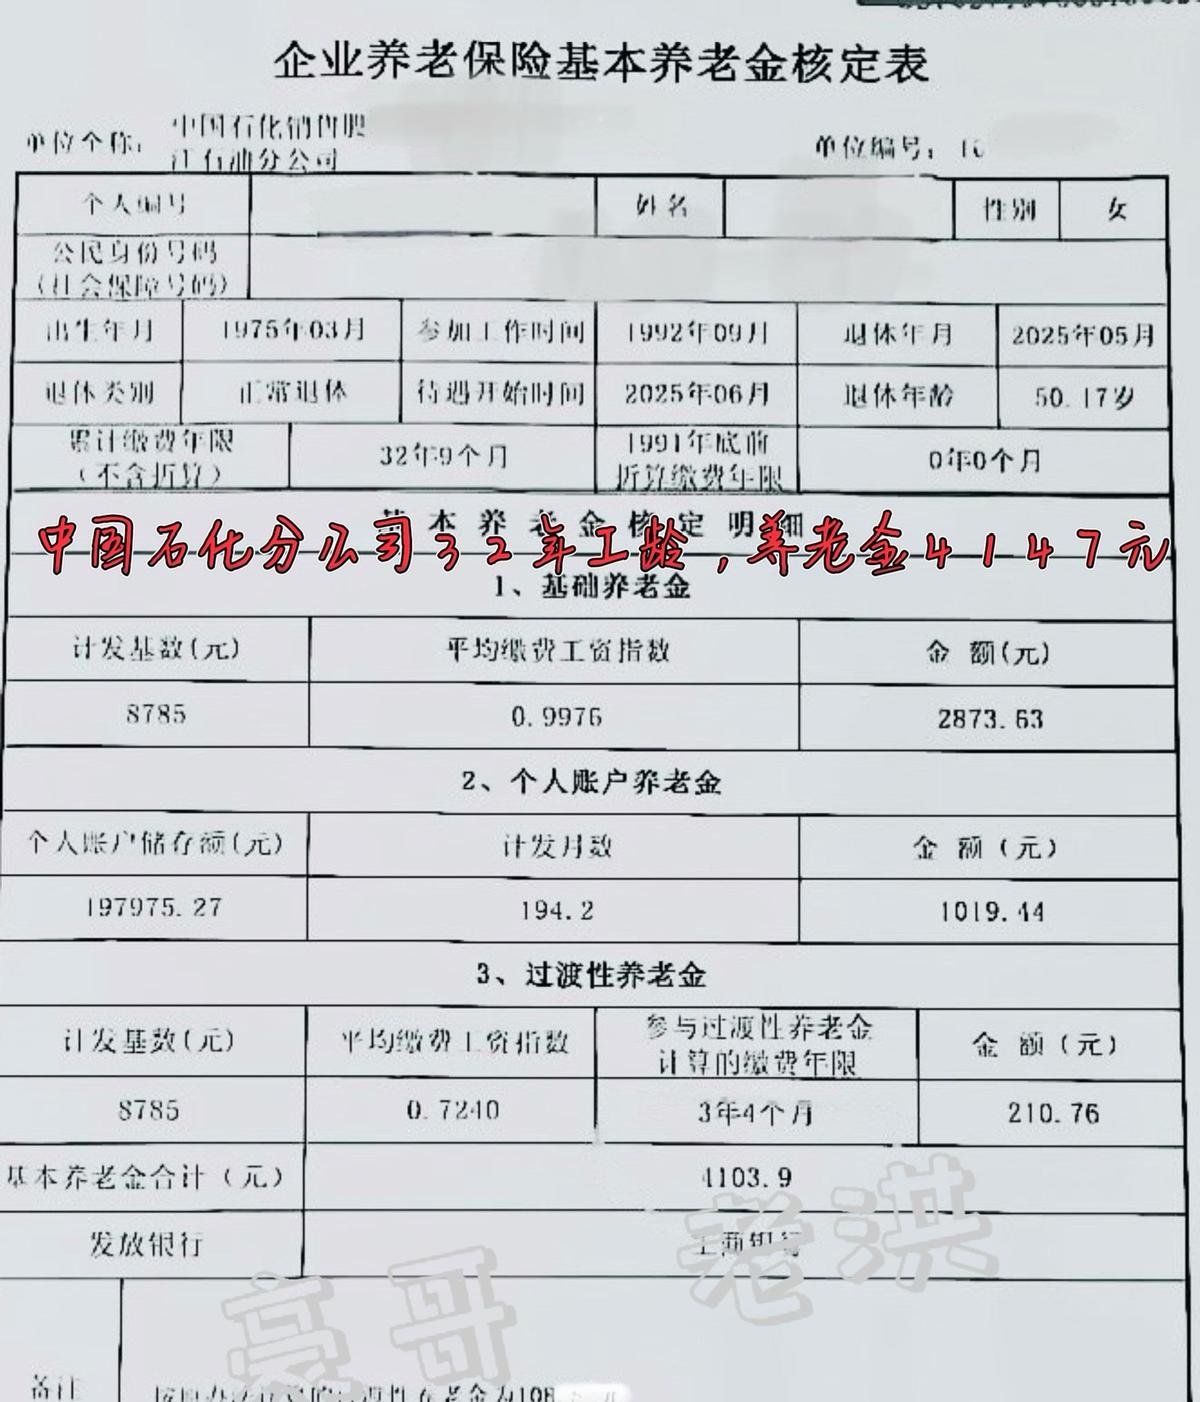 企业养老保险基本养老金核定表
单位名称： 中国石化销售股
江石油分公司
单位编号：10
个人编号 姓名 性别 女
公民身份号码
（社会保障号码）
出生年月 1975年03月 参加工作时间 1992年09月 退休年月 2025年05月
退休类别 正常退休 待遇开始时间 2025年06月 退休年龄 50.17岁
累计缴费年限
（不含折算） 32年9个月 1991年底前
折算缴费年限 0年0个月
基本养老金核定明细
中国石化分公司32年工龄，养老金4147元
1、基础养老金
计发基数(元) 平均缴费工资指数 金 额(元)
8785 0.9976 2873.63
2、个人账户养老金
个人账户储存额(元) 计发月数 金 额（元）
197975.27 194.2 1019.44
3、过渡性养老金
计发基数(元) 平均缴费工资指数 参与过渡性养老金
计算的缴费年限 金 额（元）
8785 0.7240 3年4个月 210.76
基本养老金合计（元） 4103.9
发放银行 工商银行
老洪
亮哥
备注